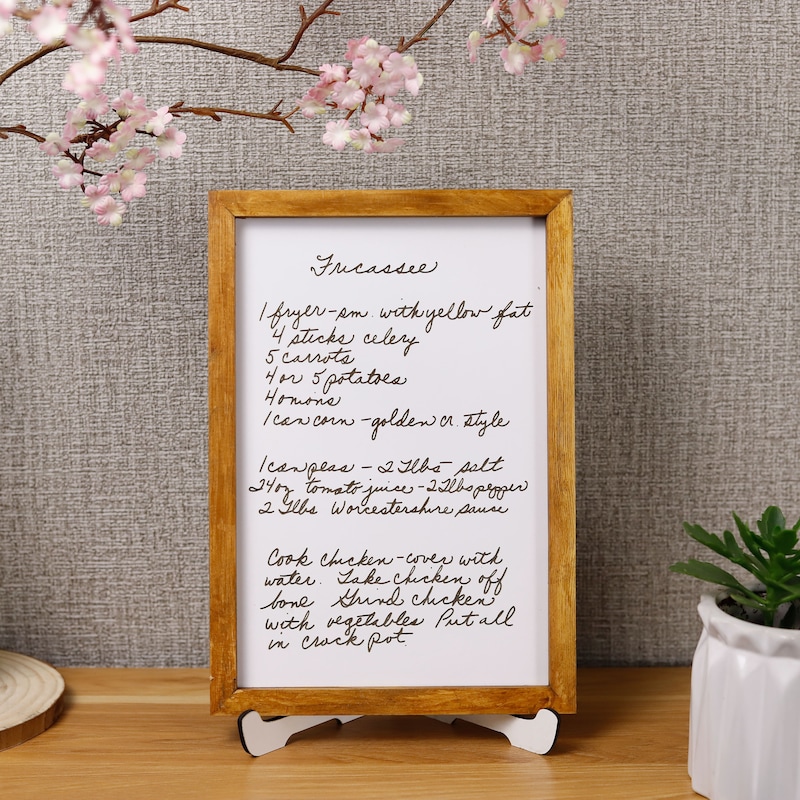 Fricassee
1 fryer - sm. with yellow fat
4 sticks celery
5 carrots
4 or 5 potatoes
4 onions
1 can corn - golden cr. style
1 can peas - 2 Tlbs salt
24oz tomato juice - 2 Tlbs pepper
2 Tlbs Worcestershire sause
Cook chicken - cover with
water. Take chicken off
bone Grind chicken
with vegetables Put all
in crock pot.